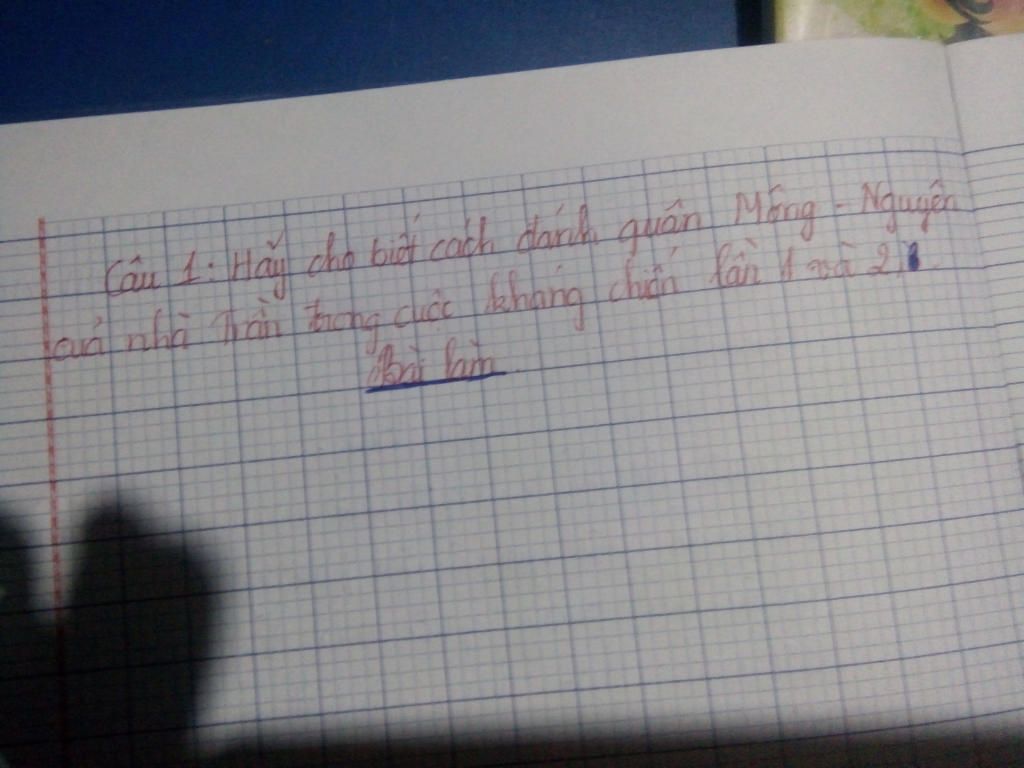 Câu 1: Hãy cho biết cách đánh quân Mông - Nguyên
của nhà Trần trong cuộc kháng chiến lần 1 và 2.
Bài làm